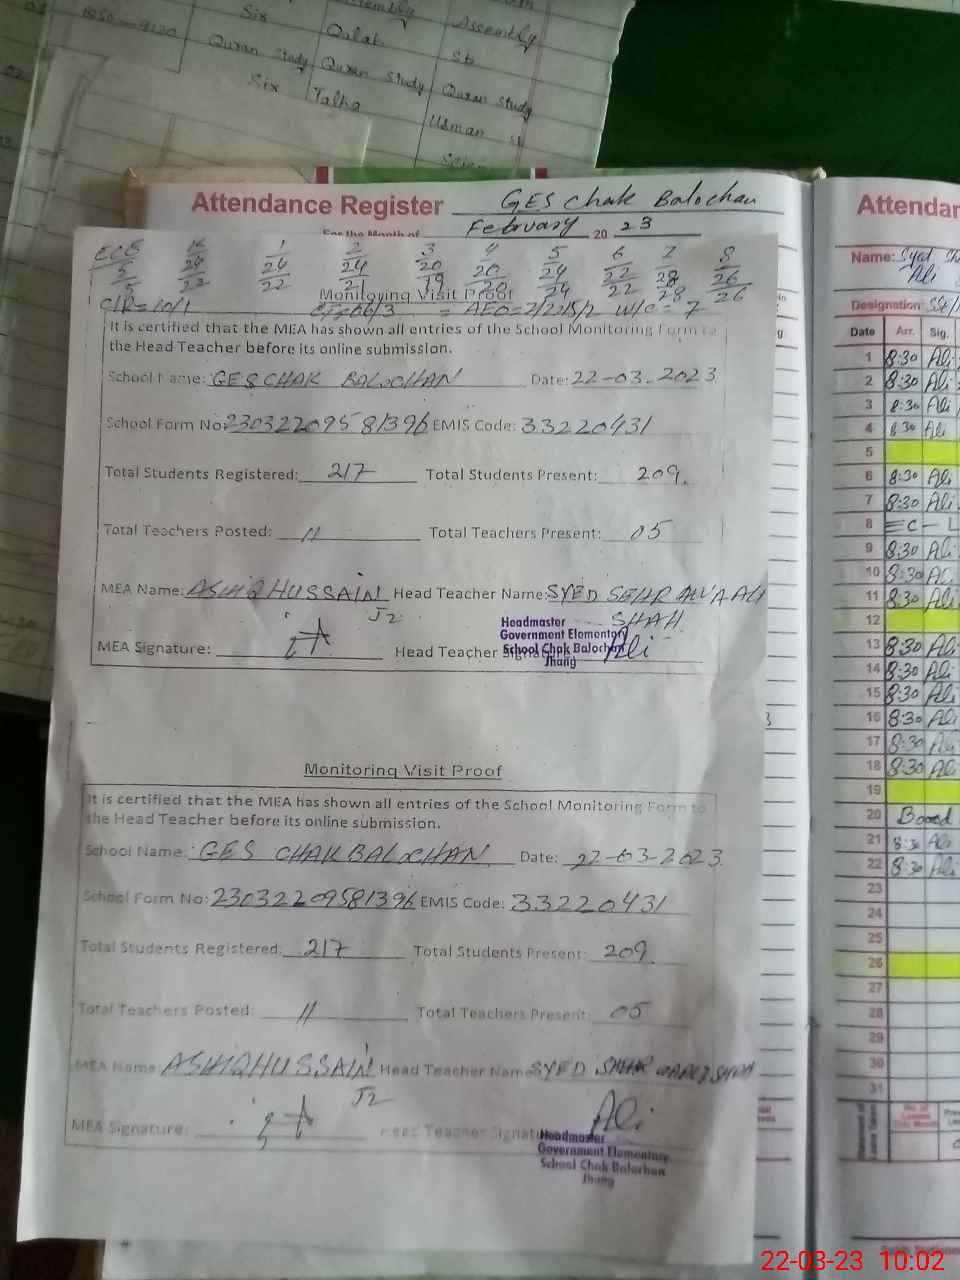 Six
Assembly
Assembly
Qalat
Quran Study
Quran Study
Quran Study
Six
Talha
Usman
Attendance Register GES Chak Balochan
For the Month of February 20 23
ECE 1 2 3 4 5 6 7 8
5 26 24 20 20 24 22 28 26
5 22 22 21 19 20 24 22 28 26
C/R=10/1
Monitoring Visit Proof
It is certified that the MEA has shown all entries of the School Monitoring Form to
the Head Teacher before its online submission.
School Name: GES CHAK BALOCHAN Date: 22-03-2023
School Form No: 23032209581396 EMIS Code: 33220431
Total Students Registered: 217 Total Students Present: 209.
Total Teachers Posted: 11 Total Teachers Present: 05
MEA Name: ASHIQ HUSSAIN Head Teacher Name: SYED
J2 SHAH
Headmaster
Government Elementary
School Chak Balochan
Jhang
MEA Signature: Head Teacher Signature: Ali
Monitoring Visit Proof
It is certified that the MEA has shown all entries of the School Monitoring Form to
the Head Teacher before its online submission.
School Name: GES CHAK BALOCHAN Date: 22-03-2023
School Form No: 23032209581396 EMIS Code: 33220431
Total Students Registered: 217 Total Students Present: 209
Total Teachers Posted: 11 Total Teachers Present: 05
MEA Name ASHIQ HUSSAIN Head Teacher Name SYED
J2
MEA Signature: Head Teacher Signature Ali
Headmaster
Government Elementary
School Chak Balochan
Jhang
Attendan
Name: Syed
Ali
Designation: SSE
Date Arr. Sig.
1 8:30 Ali
2 8:30 Ali
3 8:30 Ali
4 8:30 Ali
5
6 8:30 Ali
7 8:30 Ali
8 C L
9 8:30 Ali
10 8:30 Ali
11 8:30 Ali
12
13 8:30 Ali
14 8:30 Ali
15 8:30 Ali
16 8:30 Ali
17 8:30 Ali
18 8:30 Ali
19
20 Board
21 8:30 Ali
22 8:30 Ali
23
24
25
26
27
28
29
30
31
22-03-23 10:02